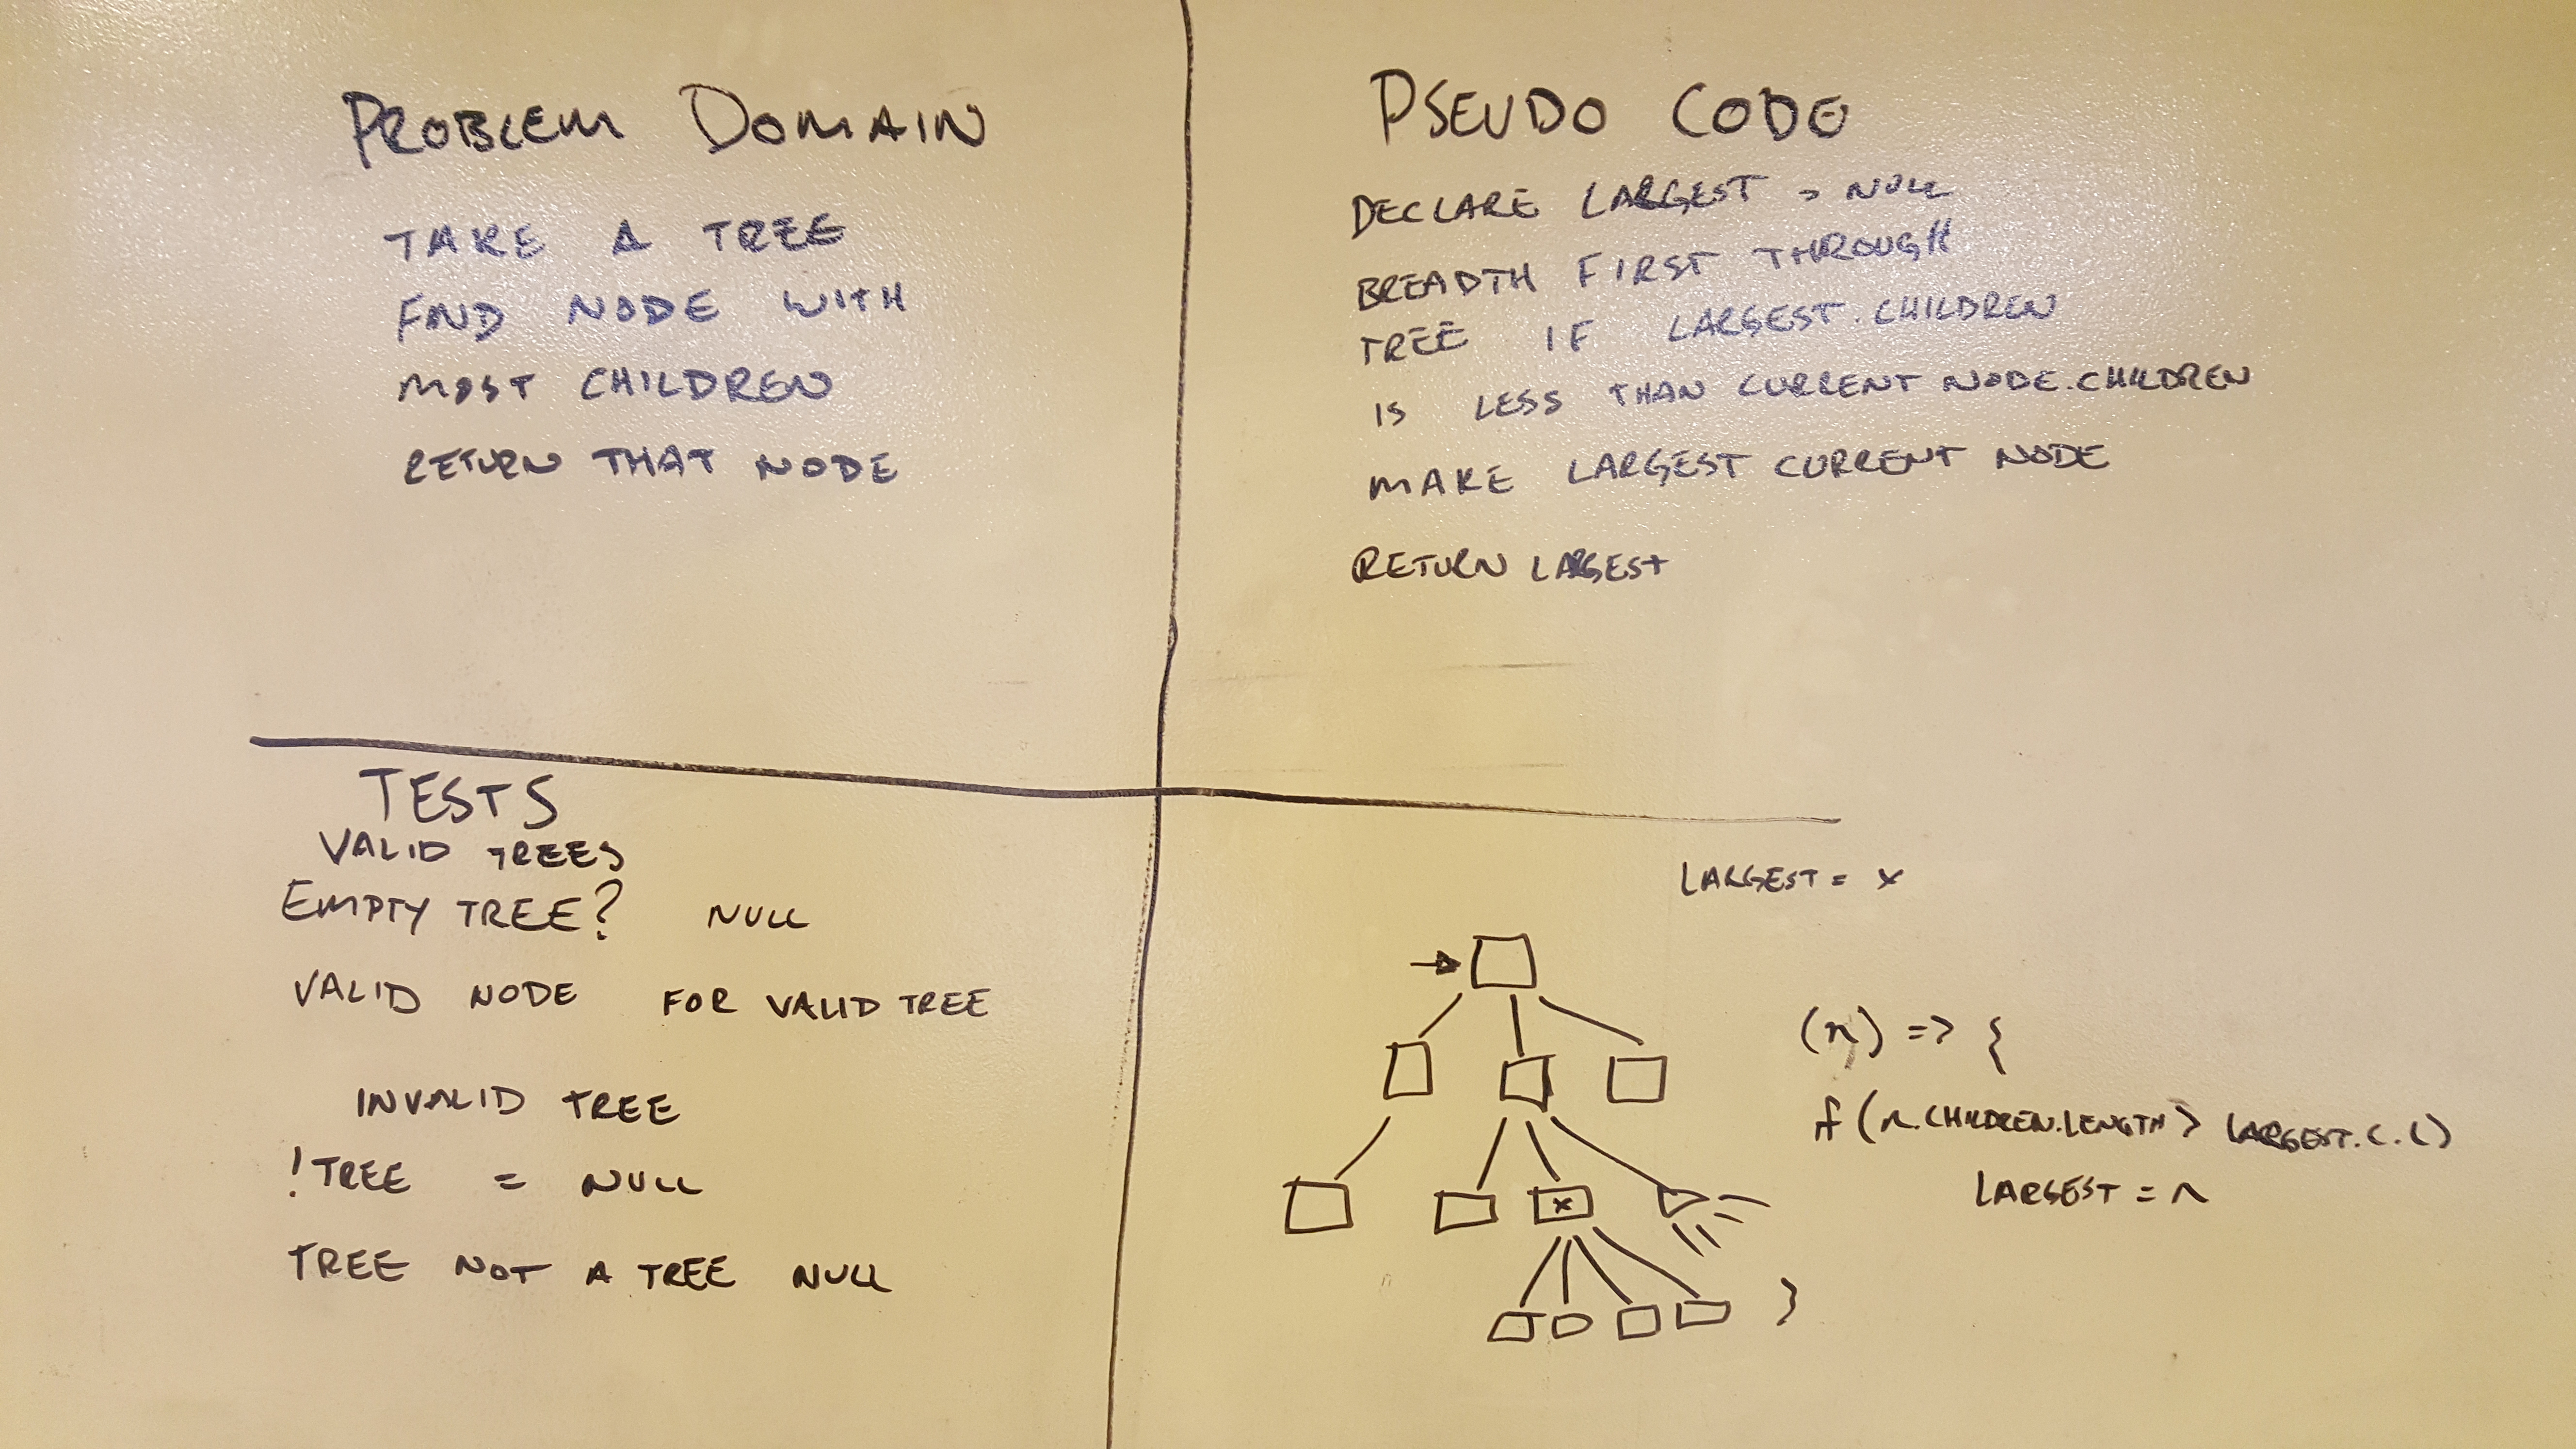 PROBLEM DOMAIN
TAKE A TREE
FIND NODE WITH
MOST CHILDREN
RETURN THAT NODE
PSEUDO CODE
DECLARE LARGEST = NULL
BREADTH FIRST THROUGH
TREE IF LARGEST.CHILDREN
IS LESS THAN CURRENT NODE.CHILDREN
MAKE LARGEST CURRENT NODE
RETURN LARGEST
TESTS
VALID TREES
EMPTY TREE? NULL
VALID NODE FOR VALID TREE
INVALID TREE
!TREE = NULL
TREE NOT A TREE NULL
LARGEST = x
(n) => {
if (n.CHILDREN.LENGTH > LARGEST.C.L)
LARGEST = n
x
}